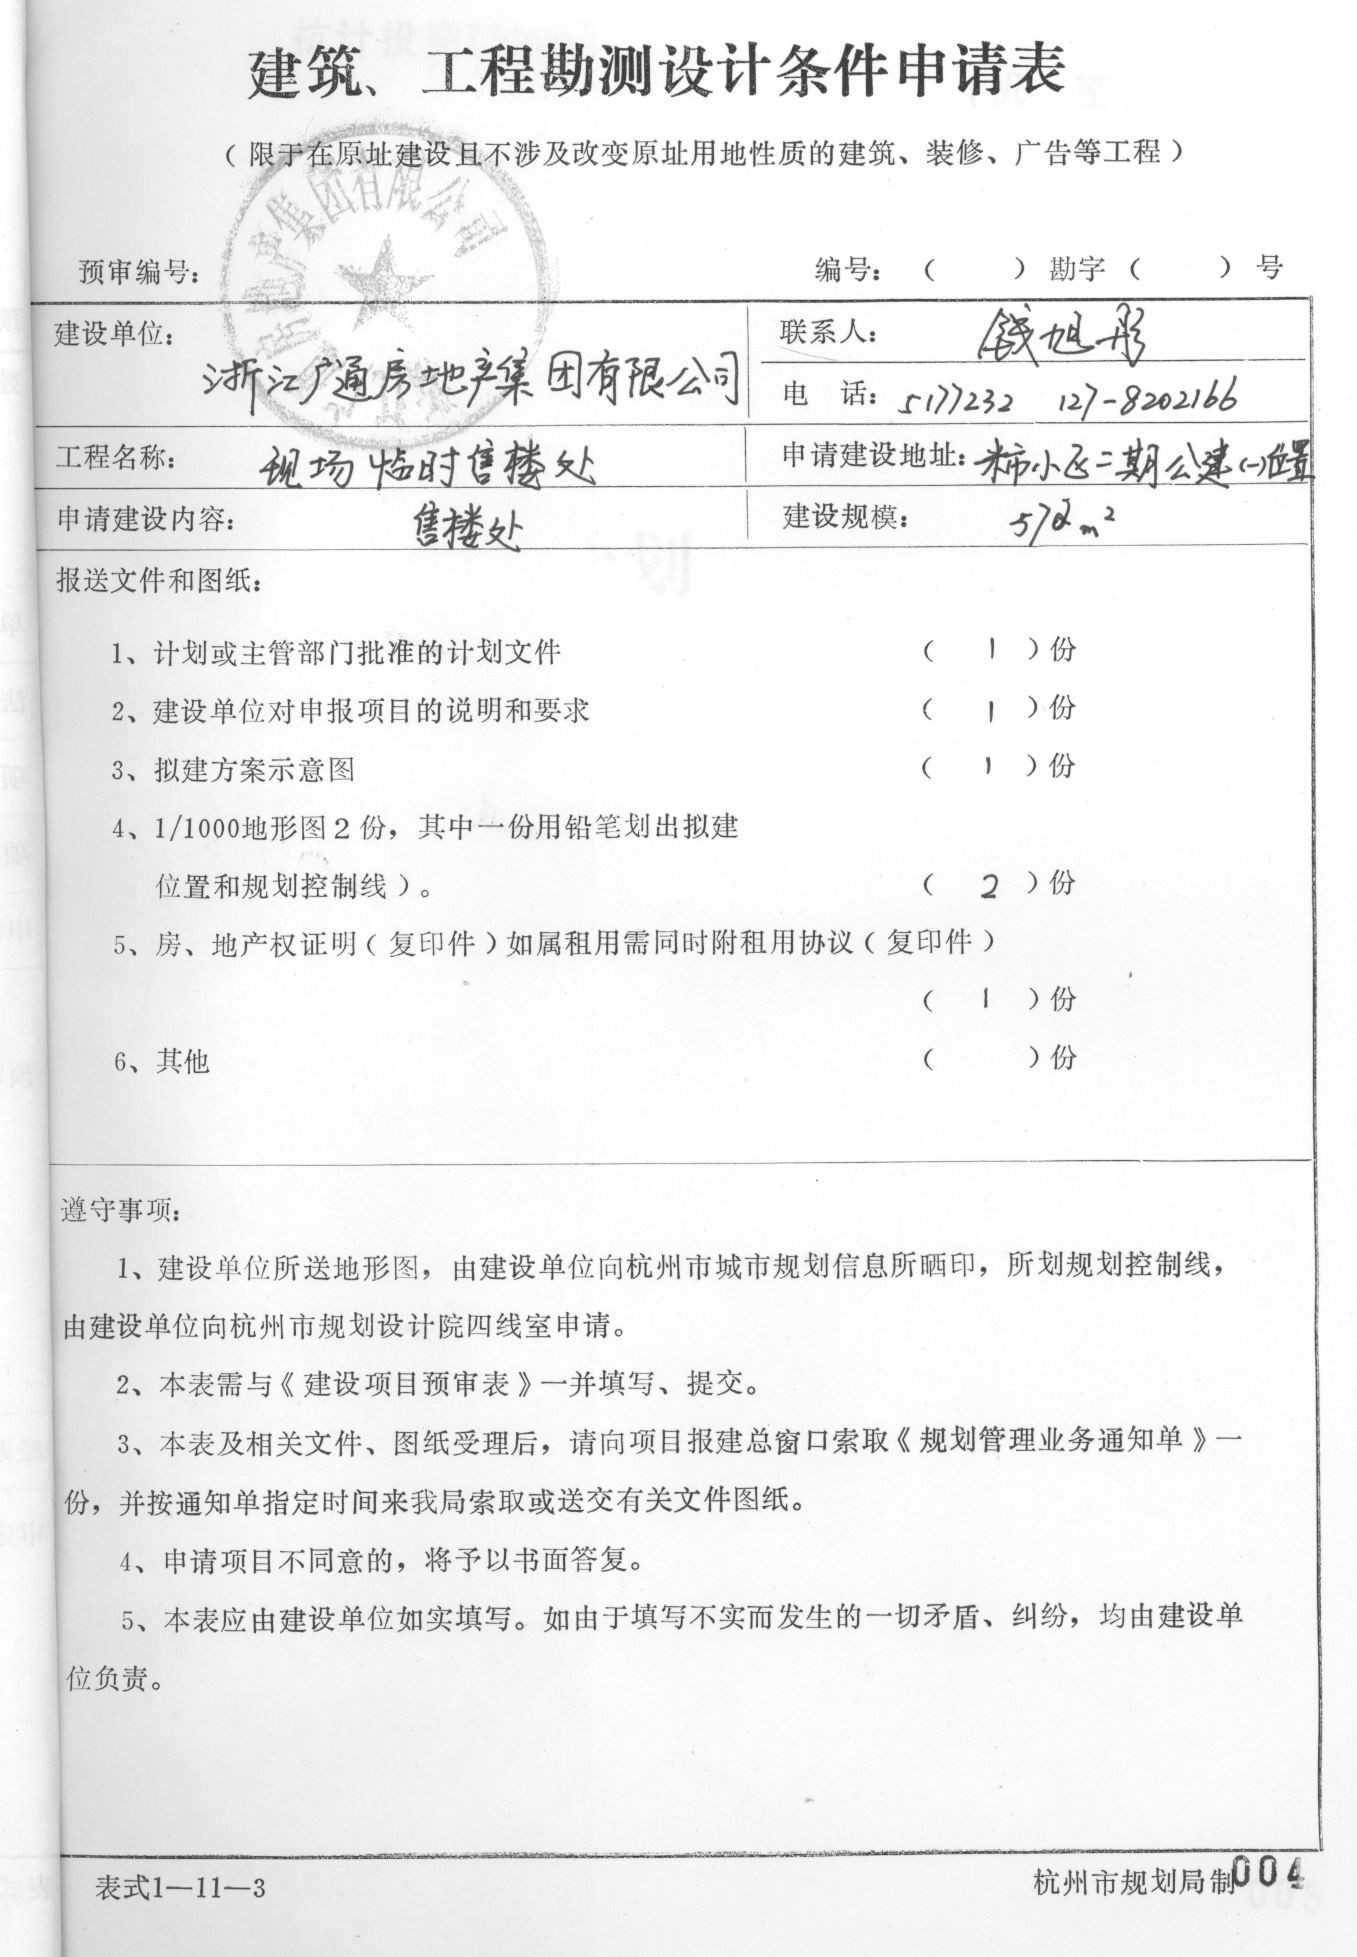 建筑、工程勘测设计条件申请表
（限于在原址建设且不涉及改变原址用地性质的建筑、装修、广告等工程）
预审编号： 编号：（ ）勘字（ ）号
建设单位： 浙江广通房地产集团有限公司
联系人： 钱旭彤
电 话： 5177232 127-8202166
工程名称： 现场临时售楼处
申请建设地址： 小区二期公建(一)位置
申请建设内容： 售楼处
建设规模： m²
报送文件和图纸：
1、计划或主管部门批准的计划文件 （ 1 ）份
2、建设单位对申报项目的说明和要求 （ 1 ）份
3、拟建方案示意图 （ 1 ）份
4、1/1000地形图2份，其中一份用铅笔划出拟建
位置和规划控制线）。 （ 2 ）份
5、房、地产权证明（复印件）如属租用需同时附租用协议（复印件）
（ 1 ）份
6、其他 （ ）份
遵守事项：
1、建设单位所送地形图，由建设单位向杭州市城市规划信息所晒印，所划规划控制线，
由建设单位向杭州市规划设计院四线室申请。
2、本表需与《建设项目预审表》一并填写、提交。
3、本表及相关文件、图纸受理后，请向项目报建总窗口索取《规划管理业务通知单》一
份，并按通知单指定时间来我局索取或送交有关文件图纸。
4、申请项目不同意的，将予以书面答复。
5、本表应由建设单位如实填写。如由于填写不实而发生的一切矛盾、纠纷，均由建设单
位负责。
表式1—11—3 杭州市规划局制
004